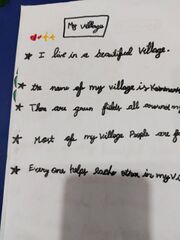 My village
I live in a beautiful village.
the name of my village is
There are green fields all around my
Most of my village People are
Every one helps each other in my